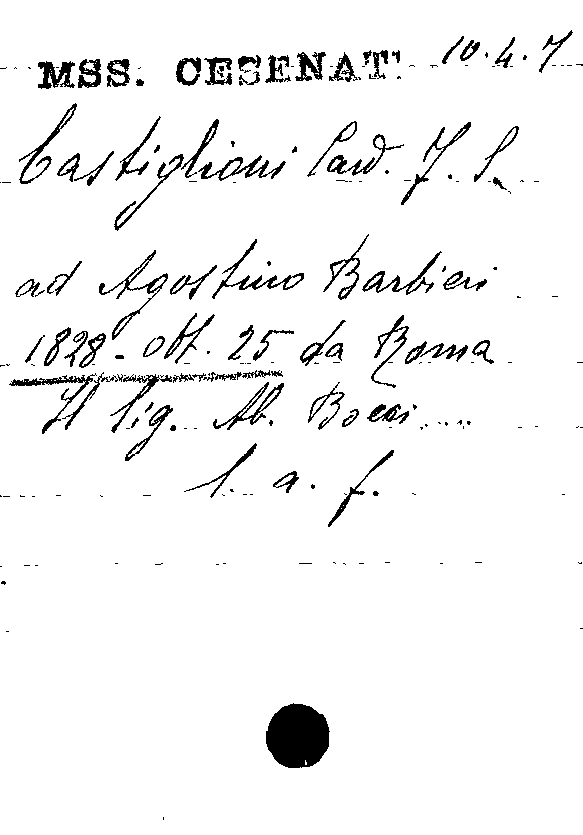 MSS. CESENAT. 10.4.7
Castiglioni Card. F. S.
ad Agostino Barbieri
1828 - ott. 25 da Roma
Il Sig. Ab. Bocci ....
l. a. f.